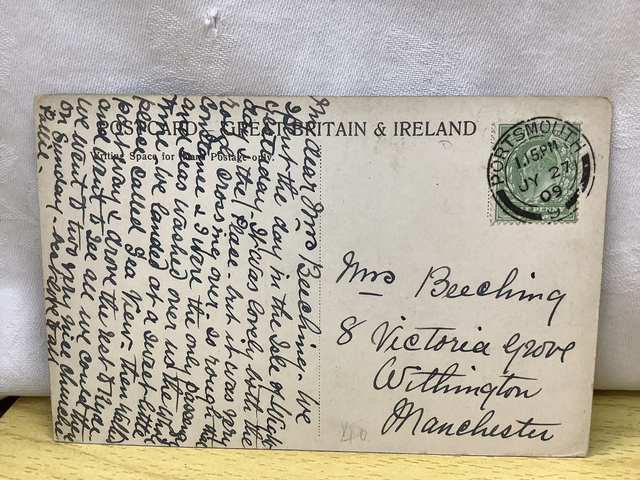 POSTCARD GREAT BRITAIN & IRELAND
Writing Space for Inland Postage only.
PORTSMOUTH
1.15 PM
JY 27
09
My dear Mrs Beeching - We
spent the day in the Isle of Wight
yesterday. It was lovely both the
the Place - but it was very
rough crossing over, so rough that
Constance & I were the only
and seas washed over us the
time we landed at a sweet little
place called Sea View - then
part way & drove the rest to Ryde
and went to see all we could
We went to two very nice
on Sunday,
Mrs Beeching
8 Victoria Grove
Withington
Manchester